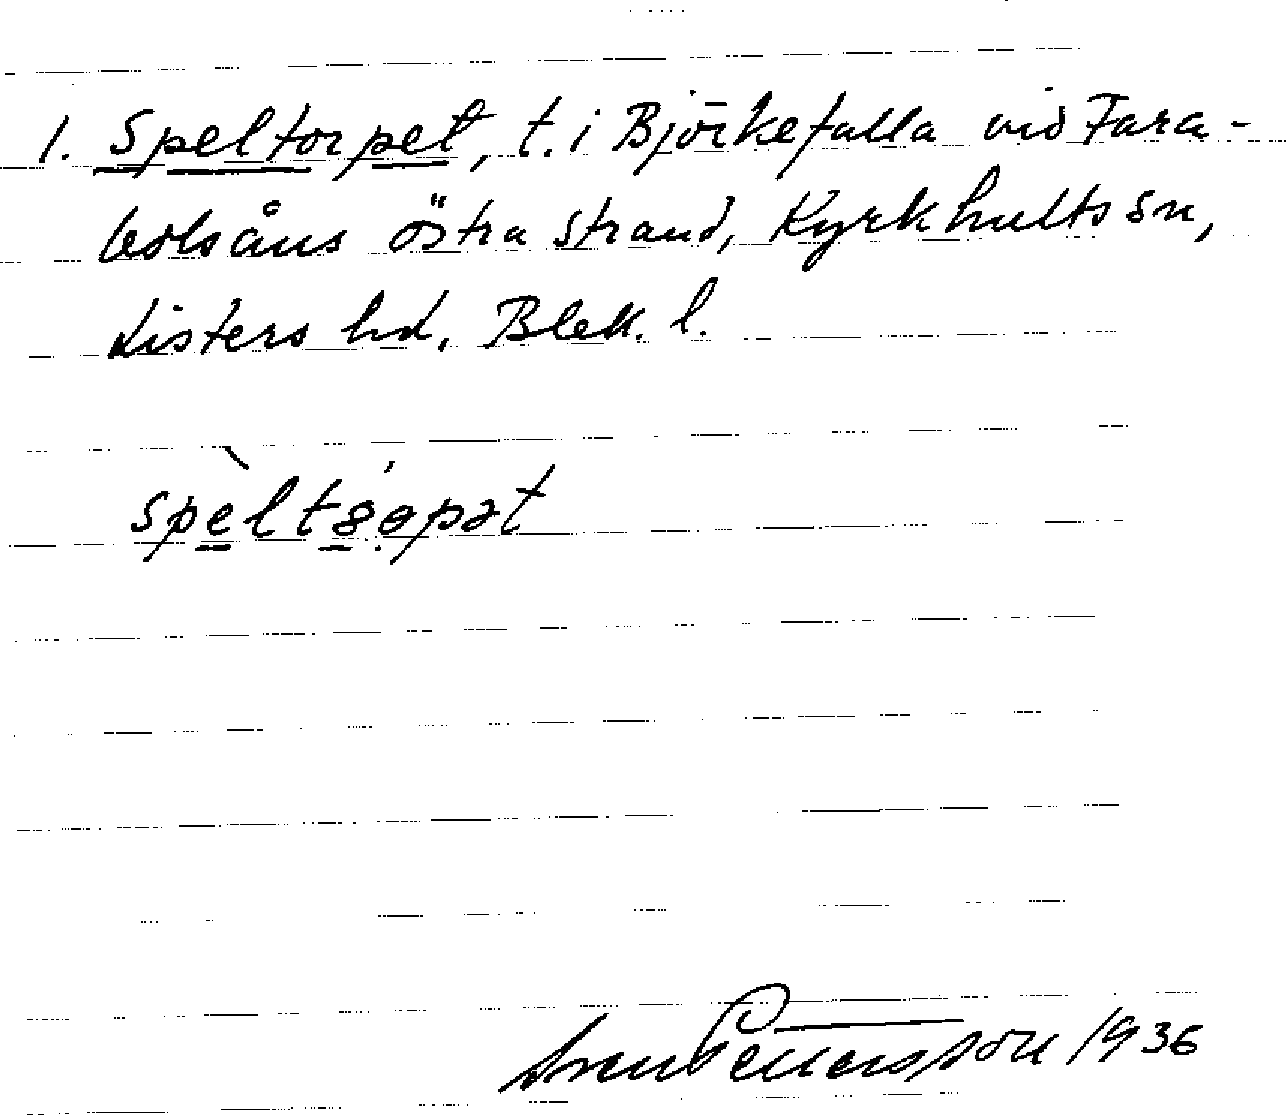 1. Speltorpet, t. i Björkefalla vid Fara-
bolsåns östra strand, Kyrkhults sn,
Listers hd, Blek. l.
Sven Pettersson 1936